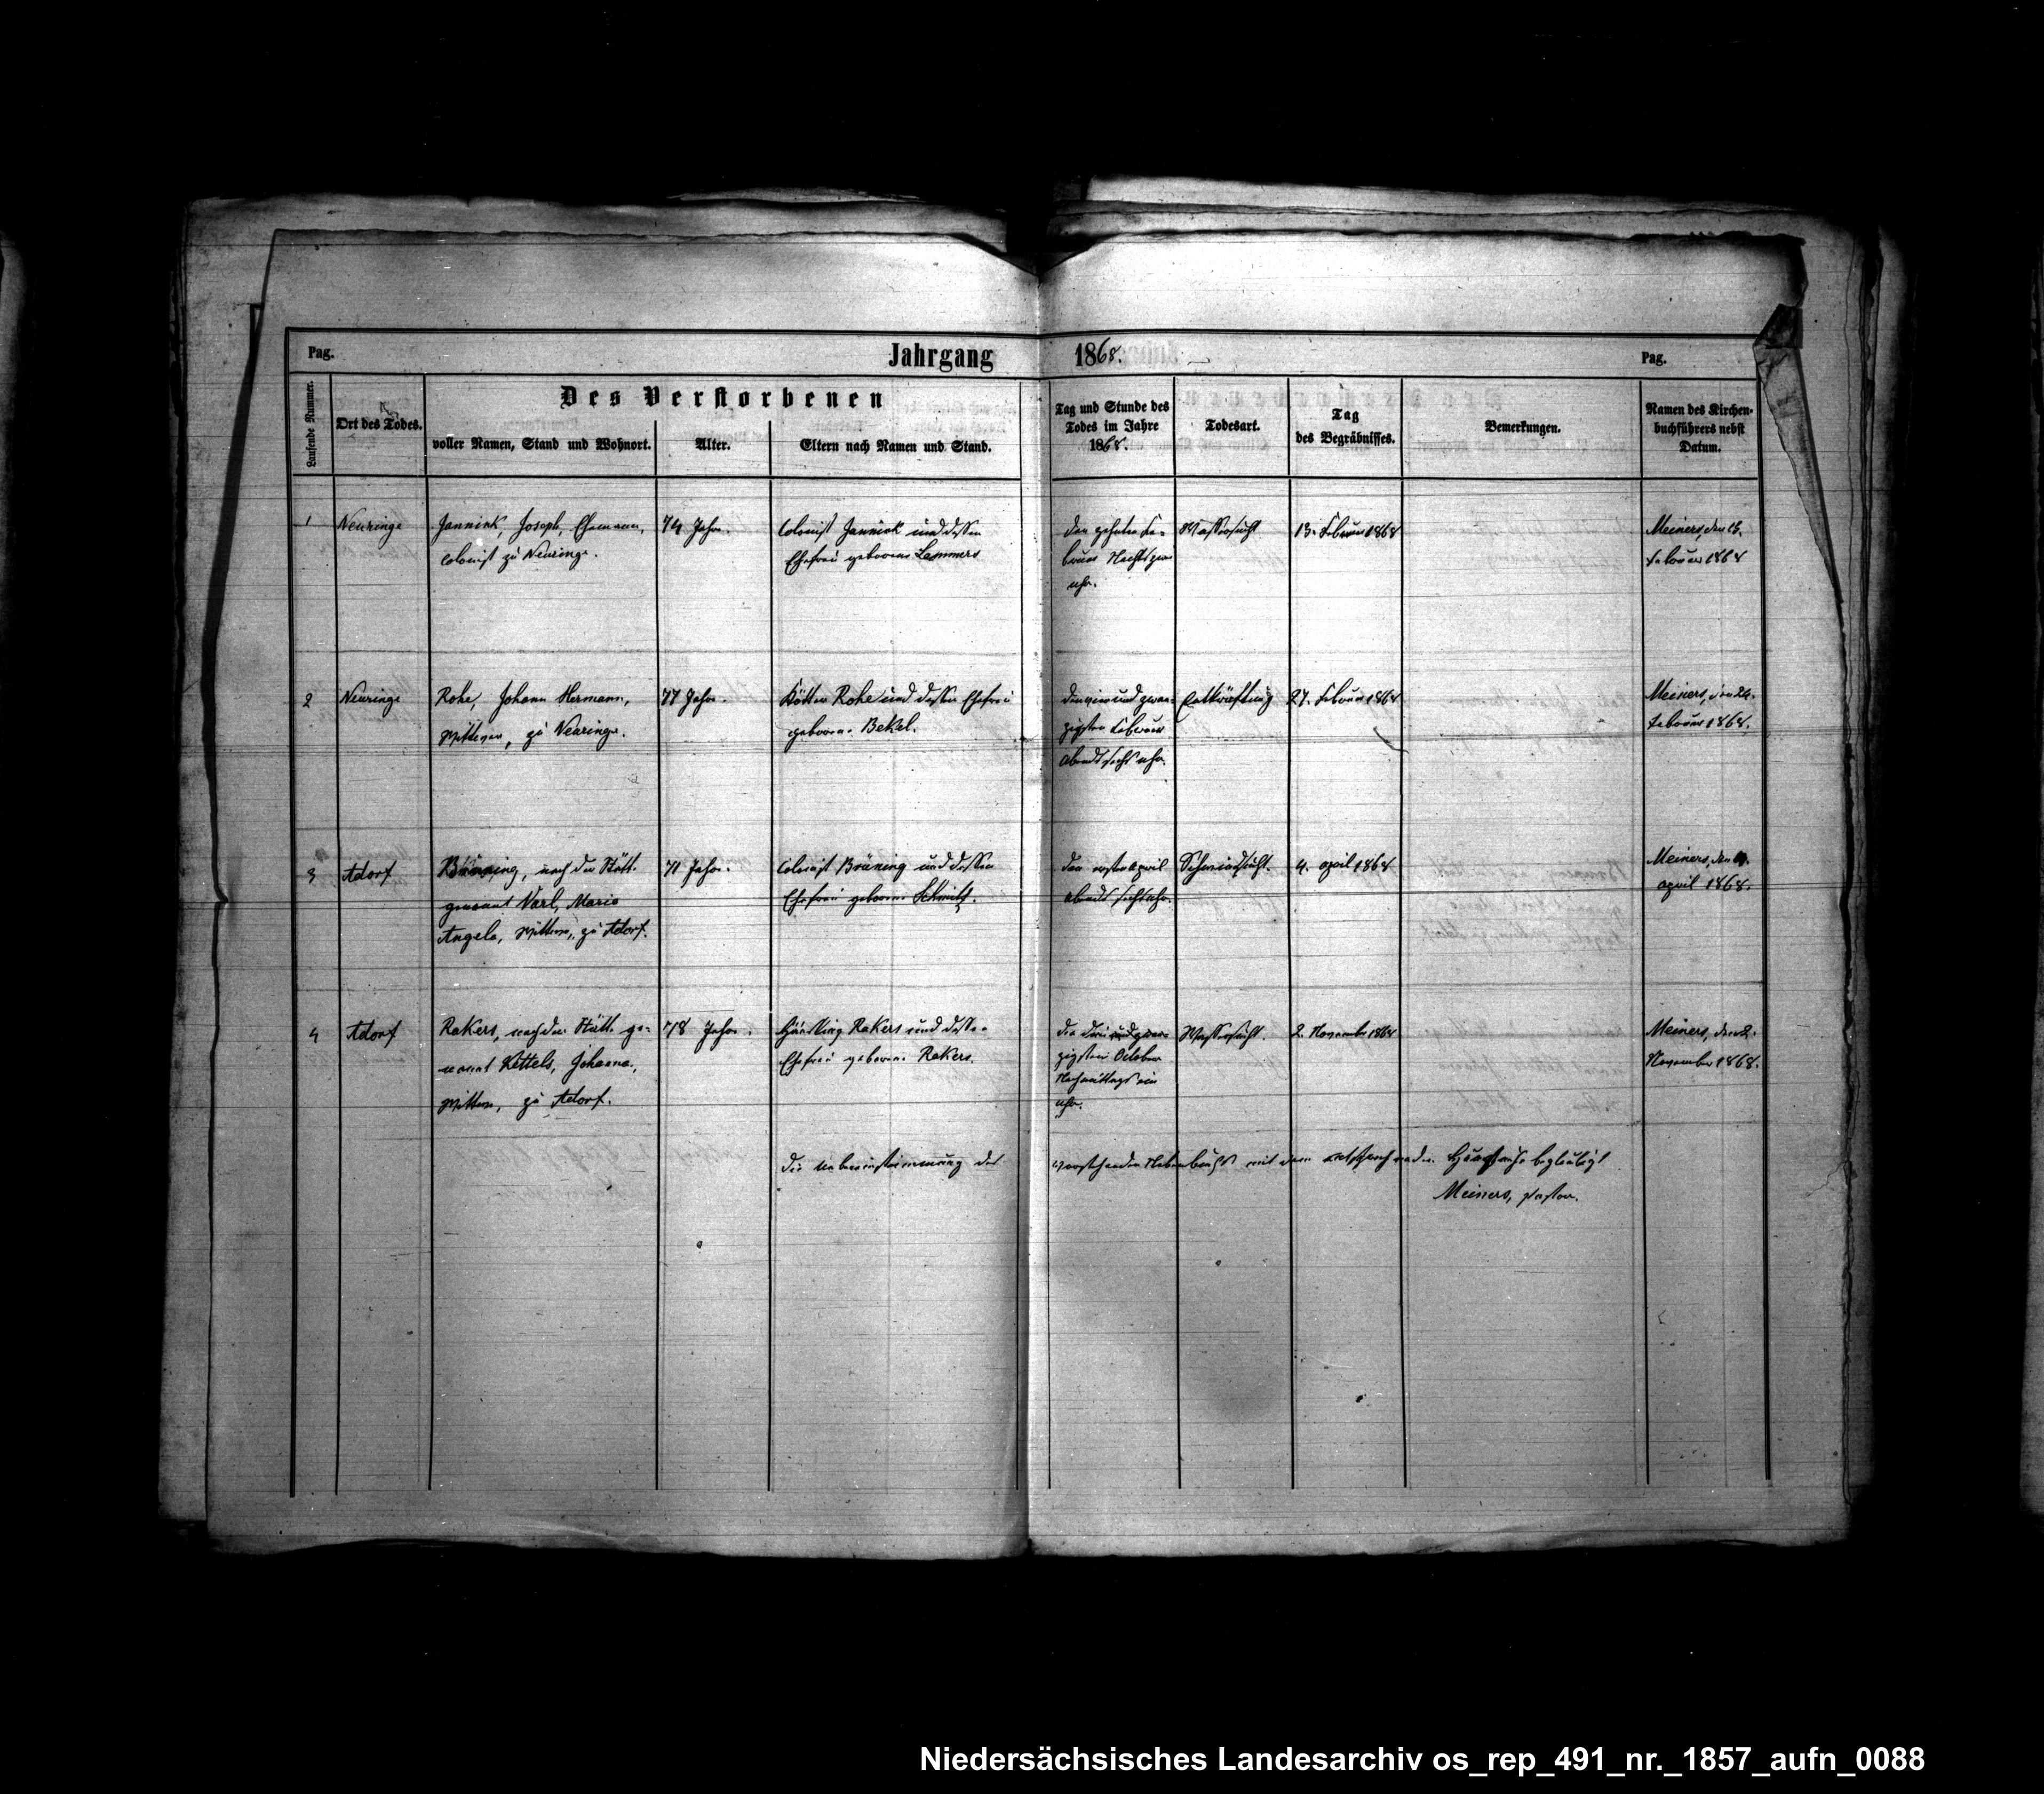 Pag.
Jahrgang 1868.
Pag.
Laufende Nummer.
Ort des Todes.
Des Verstorbenen
voller Namen, Stand und Wohnort.
Alter.
Eltern nach Namen und Stand.
Tag und Stunde des
Todes im Jahre
1868.
Todesart.
Tag
des Begräbnisses.
Bemerkungen.
Namen des Kirchen-
buchführers nebst
Datum.
1
Neuringe
Jannink, Joseph, Ehemann,
Colonist zu Neuringe.
74 Jahre.
Colonist Jannink und dessen
Ehefrau geborene Lammers
den zehnten Fe-
bruar Nachts zwei
uhr.
Wassersucht
13. Februar 1868
Meiners, den 13.
Februar 1868
2
Neuringe
Rohe, Johann Hermann,
Wittwer, zu Neuringe.
77 Jahre.
Kötter Rohe und dessen Ehefrau
geborene Bekel.
den vier und zwan-
zigsten Februar
Abends sechs uhr.
Entkräftung
27. Februar 1868
Meiners, den 24.
Februar 1868.
3
Adorf
Brüning, nach der Stätte
genannt Varl, Maria
Angela, Wittwe, zu Adorf.
71 Jahre.
Colonist Brüning und dessen
Ehefrau geborene Schmitz.
den ersten April
Abends sechs uhr.
Schwindsucht.
4. April 1868
Meiners, den 4.
April 1868.
4
Adorf
Rakers, nach der Stätte ge-
nannt Kettels, Johanna,
Wittwe, zu Adorf.
78 Jahre.
Häusling Rakers und dessen
Ehefrau geborene Rakers.
den drei und zwan-
zigsten October
Nachmittags ein
uhr.
Wassersucht.
2. November 1868
Meiners, den 2.
November 1868.
Die Uebereinstimmung des vorstehenden Nebenbuchs mit dem entsprechenden Hauptbuche beglaubigt
Meiners, Pastor.
Niedersächsisches Landesarchiv os_rep_491_nr._1857_aufn_0088